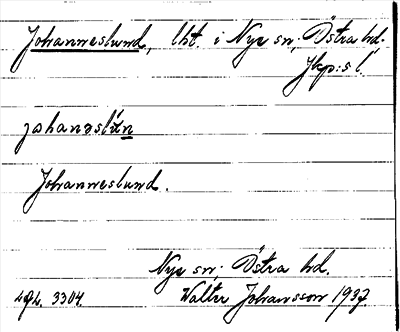 Johanneslund, lht. i Nye sn; Östra hd.
Jkp:s l.
johanəslún
Johanneslund.
Nye sn; Östra hd.
3304. Walter Johansson 1937.